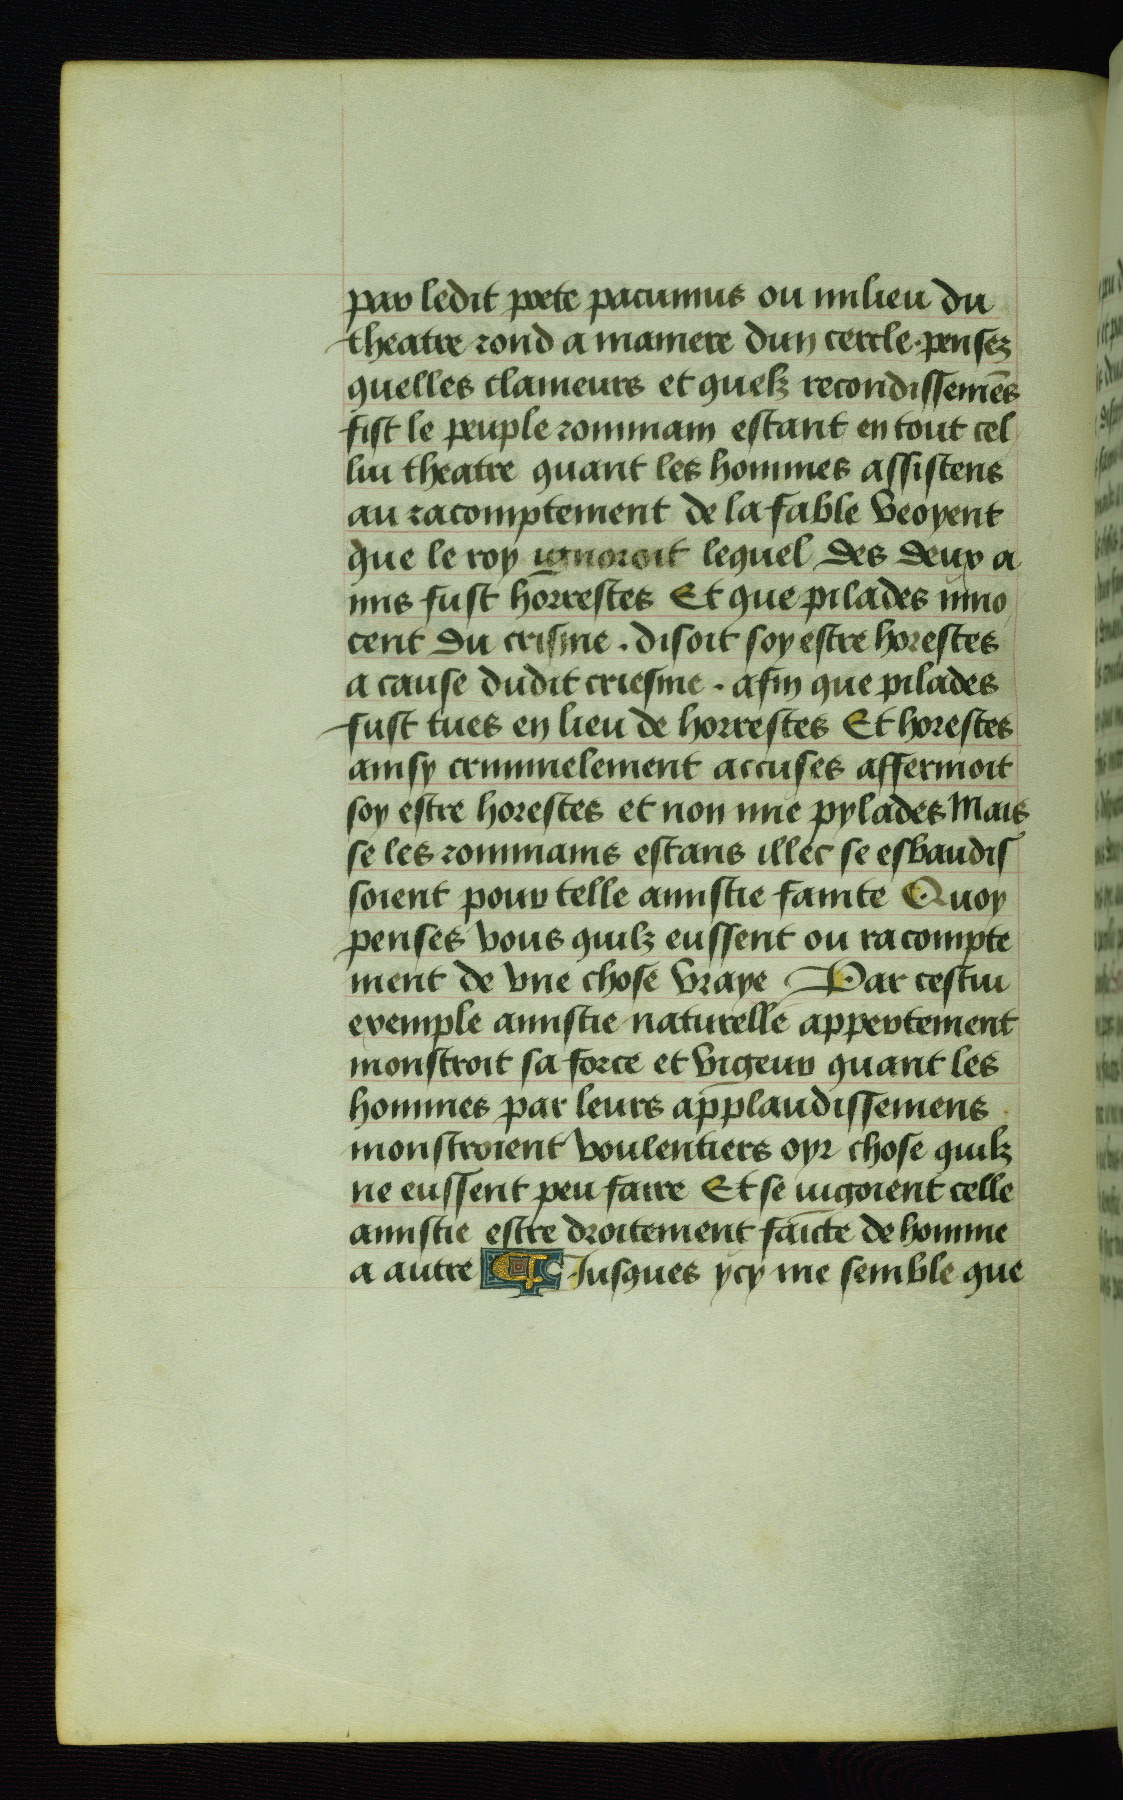 par ledit poete pacuuius ou milieu du
theatre rond a maniere dun cercle. pensez
quelles clameurs et quelz recondissemēs
fist le peuple rommain estant en tout cel
lui theatre quant les hommes assistens
au racomptement de la fable veoyent
que le roy ignoroit lequel des deux a
mis fust horrestes Et que pilades inno
cent du crisme . disoit soy estre horestes
a cause dudit criesme . afin que pilades
fust tues en lieu de horrestes Et horestes
ainsy criminelement accuses affermoit
soy estre horestes et non mie pylades Mais
se les rommains estans illec se esbaudis
soient pour telle amistie fainte Quoy
penses vous quilz eussent ou racompte
ment de vne chose vraye Par cestui
exemple amistie naturelle appertement
monstroit sa force et vigeur quant les
hommes par leurs applaudissemens
monstroient voulentiers oyr chose quilz
ne eussent peu faire Et se iugoient celle
amistie estre droitement faicte de homme
a autre Iusques ycy me semble que